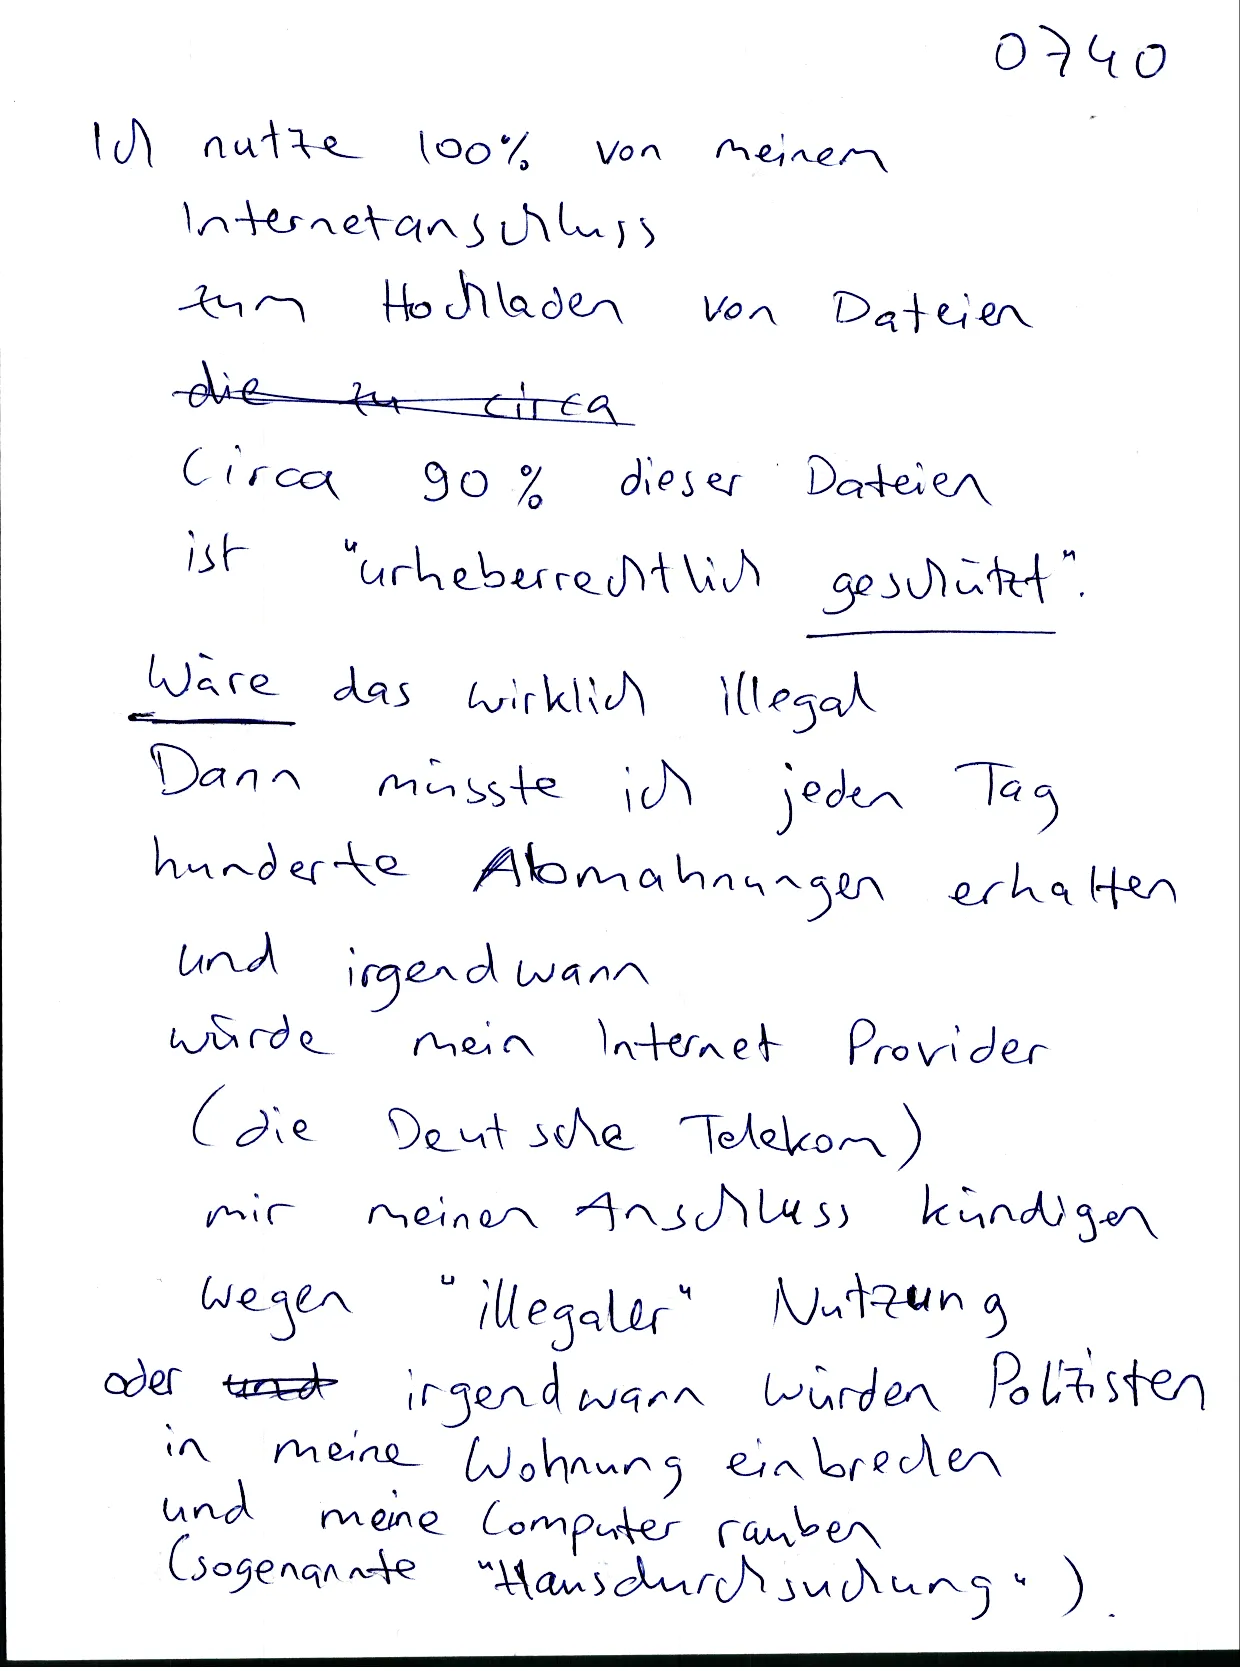 0740
Ich nutze 100% von meinem
Internetanschluss
zum Hochladen von Dateien
die zu circa
Circa 90% dieser Dateien
ist "urheberrechtlich geschützt".
Wäre das wirklich illegal
Dann müsste ich jeden Tag
hunderte Abmahnungen erhalten
und irgendwann
würde mein Internet Provider
(die Deutsche Telekom)
mir meinen Anschluss kündigen
wegen "illegaler" Nutzung
oder und irgendwann würden Polizisten
in meine Wohnung einbrechen
und meine Computer rauben
(sogenannte "Hausdurchsuchung").